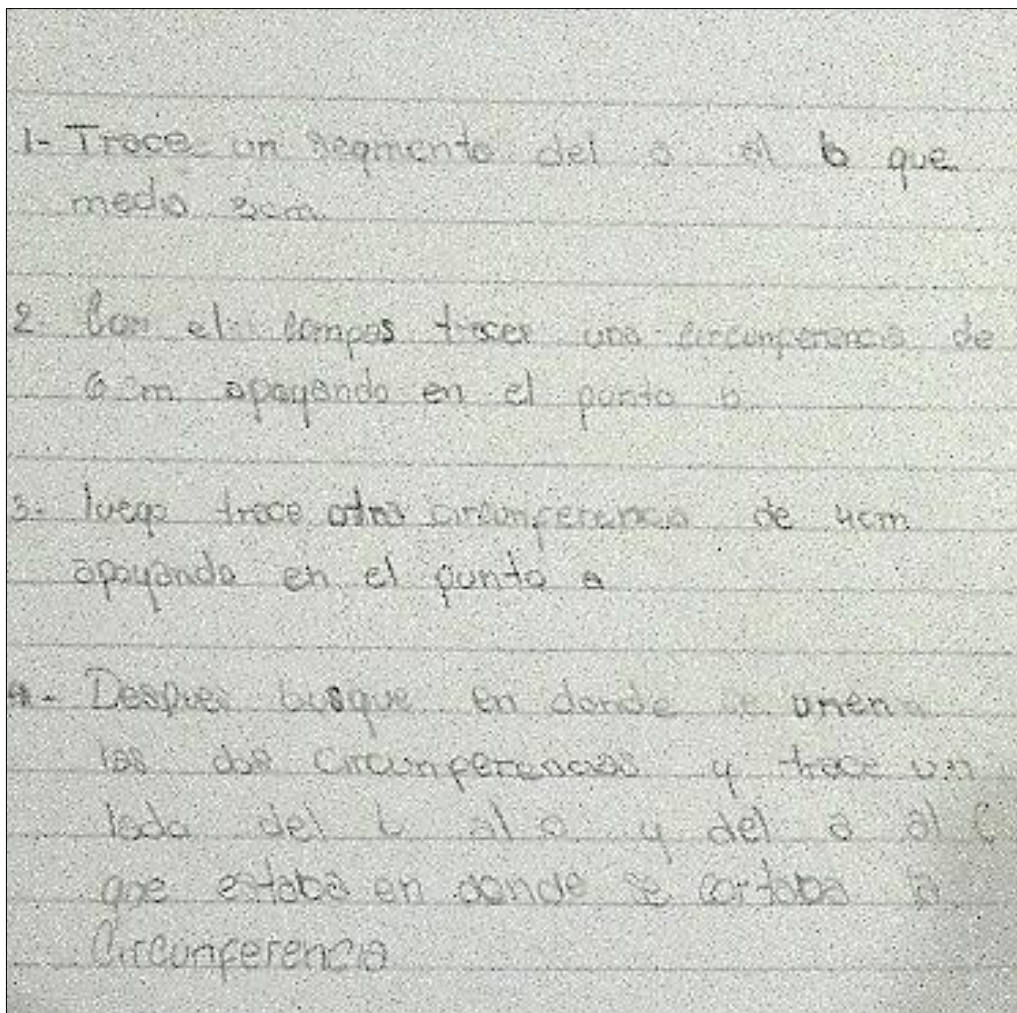 1- Trace un segmento del a al b que
medio 3cm
2- Con el compas traces una circunferencia de
6 cm apoyando en el punto b.
3- luego trace otra circunferencia de 4cm
apoyando en el punto a
4- Despues busque en donde se unen
las dos circunferencias y trace un
lado del b al a y del a al C
que estaba en donde se cortaba la
Circunferencia